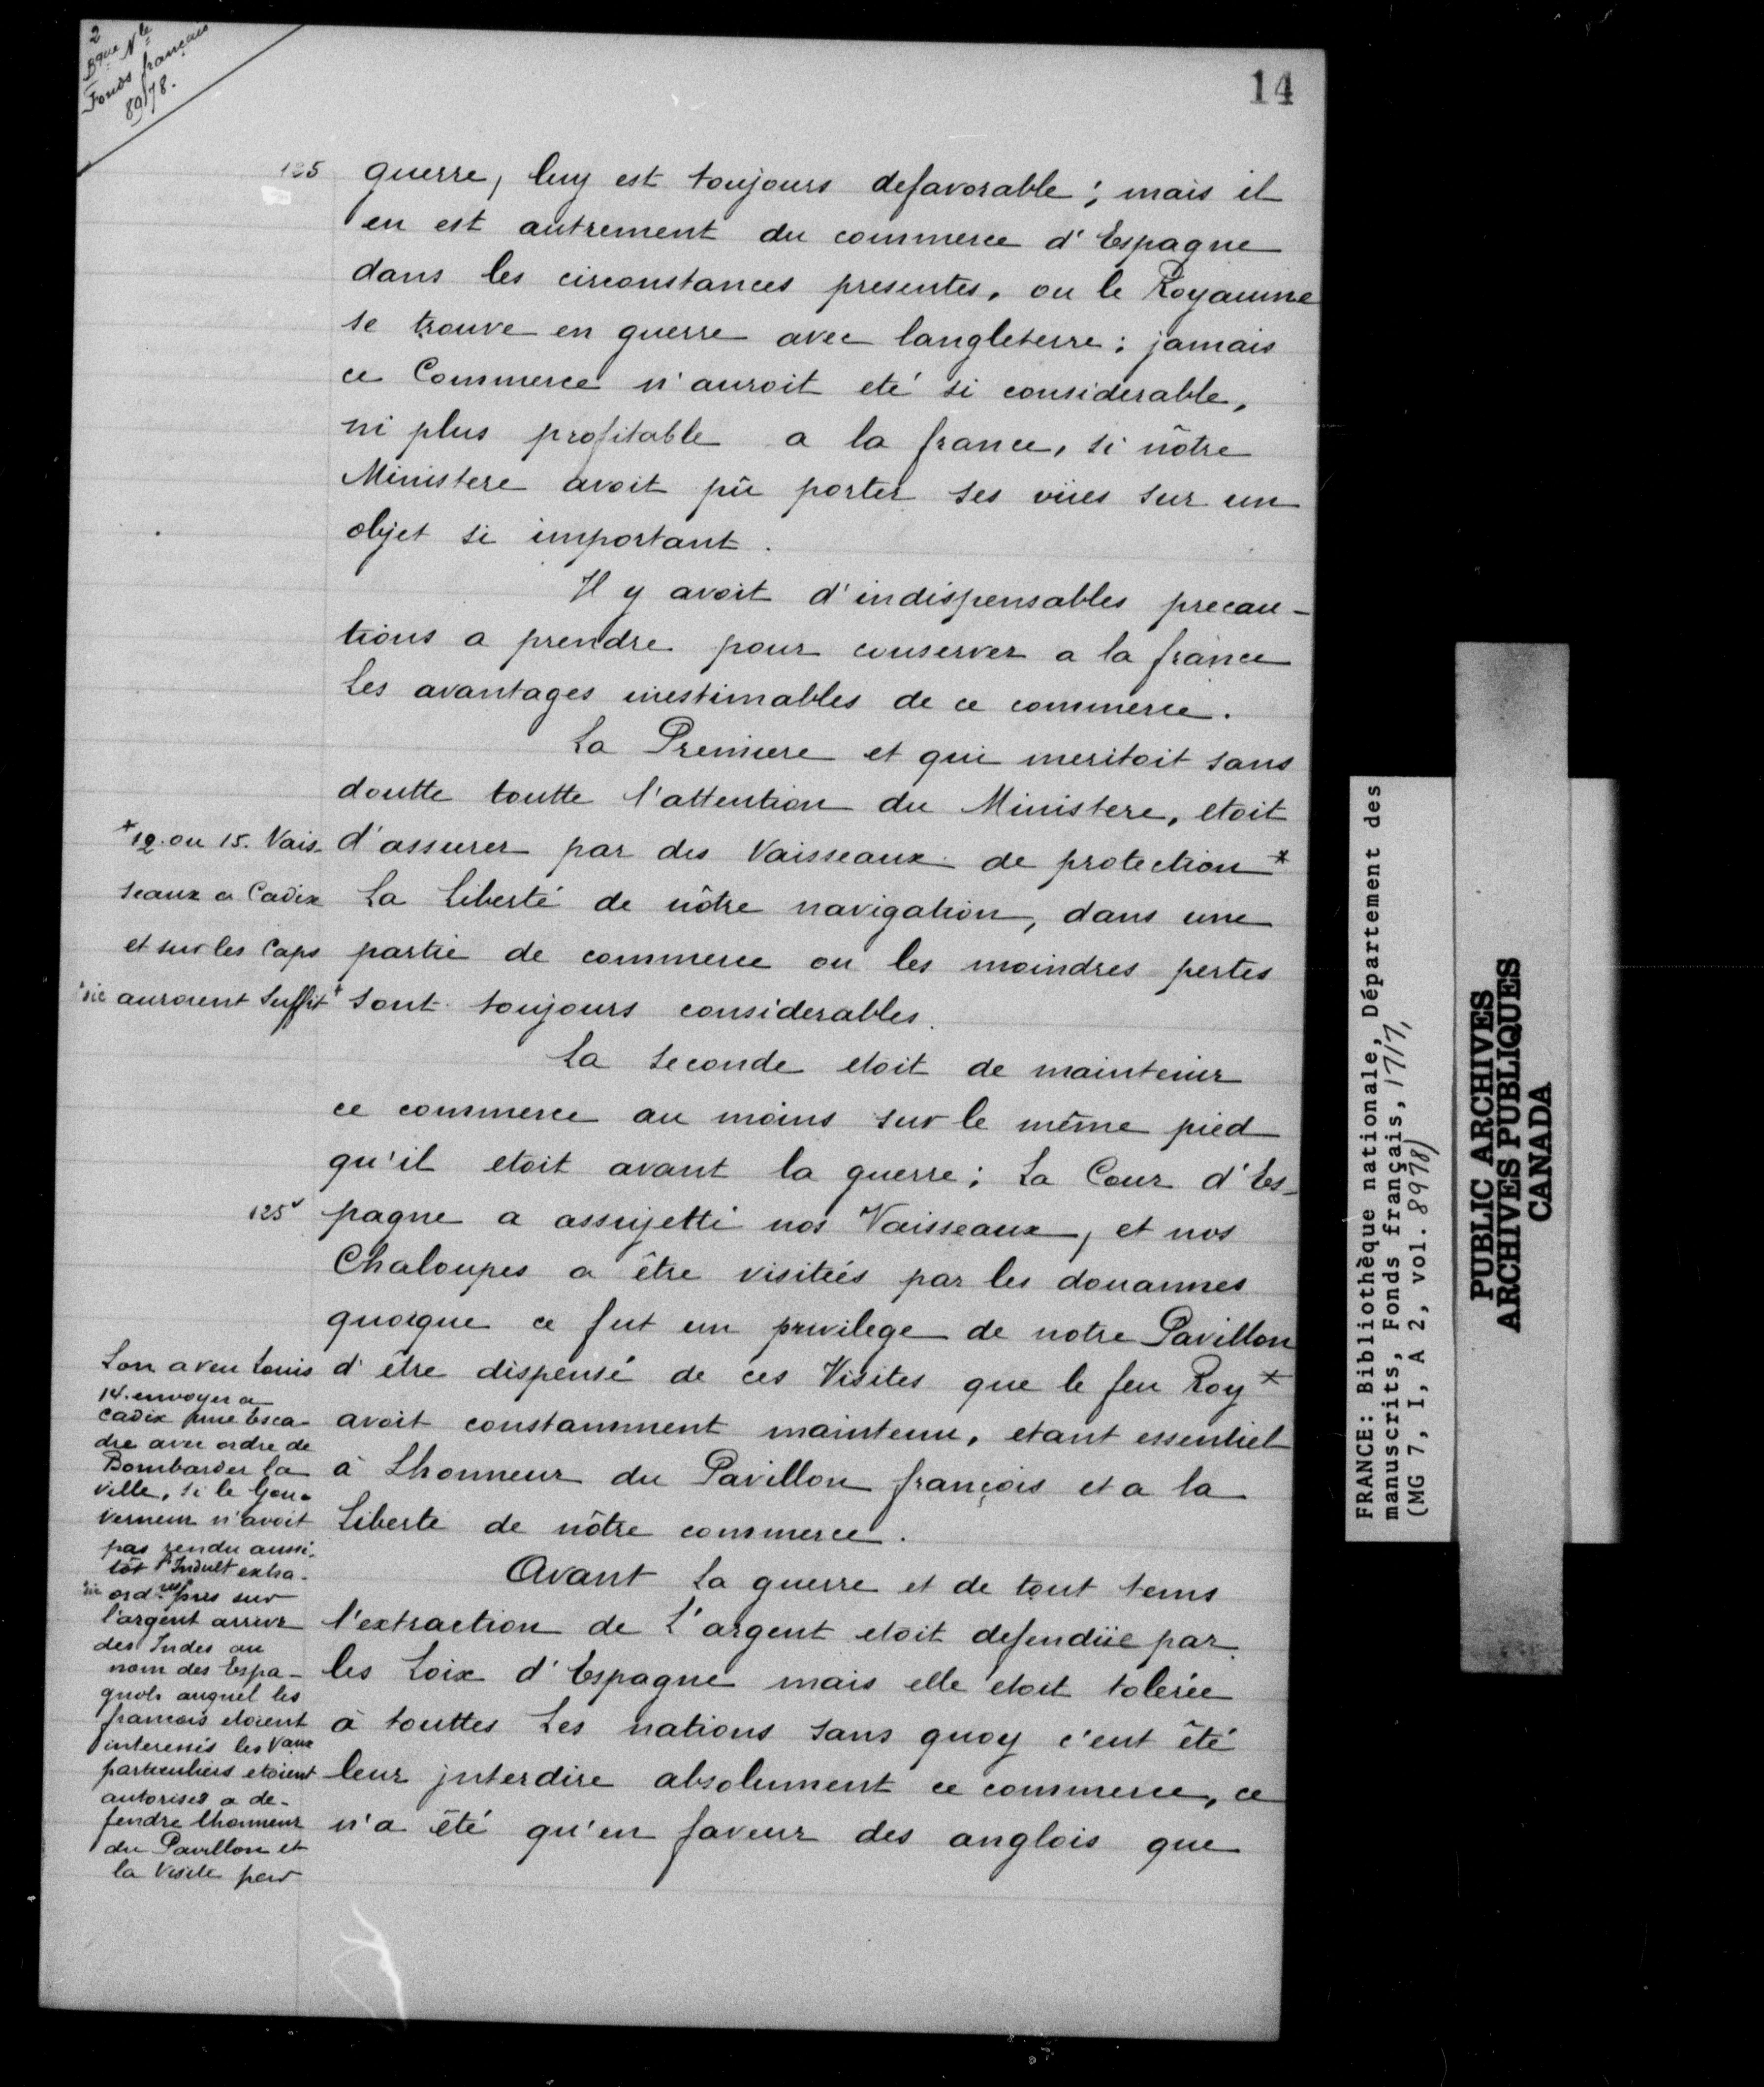 2
Bque Nle
Fonds français
8978.
14
125 guerre, luy est toujours defavorable; mais il
en est autrement du commerce d'Espagne
dans les circonstances presentes, ou le Royaume
se trouve en guerre avec langleterre; jamais
ce Commerce n'auroit eté si considerable,
ni plus profitable a la france, si nôtre
Ministere avoit pû porter ses vües sur un
objet si important.
Il y avoit d'indispensables precau-
tions a prendre pour conserver a la france
Les avantages inestimables de ce commerce.
La Premiere et qui meritoit sans
doutte toutte l'attention du Ministere, etoit
d'assurer par des Vaisseaux de protection *
La Liberté de nôtre navigation, dans une
partie de commerce ou les moindres pertes
sont toujours considerables.
*12. ou 15. Vais-
seaux a Cadix
et sur les Caps
sic auroient Suffit *
La Seconde etoit de maintenir
ce commerce au moins sur le même pied
qu'il etoit avant la guerre; La Cour d'Es-
125v pagne a assujetti nos Vaisseaux, et nos
Chaloupes a être visitées par les douannes
quoique ce fut un privilege de notre Pavillon
d'être dispensé de ces Visites que le feu Roy *
avoit constamment maintenu, etant essentiel
à Lhonneur du Pavillon françois et a la
Liberte de nôtre commerce.
Lon a veu Louis
14. envoyer a
Cadix une Esca-
dre avec ordre de
Bombarder la
ville, si le Gou-
verneur n'avoit
pas rendu aussi-
tôt l'Indult extra-
sic ordres pris sur
l'argent arrivé
des Indes au
nom des Espa-
gnols auquel les
francois etoient
interessés les Vaux
particuliers etoient
autorisés a de-
fendre lhonneur
du Pavillon et
la Visite par
Avant La guerre et de tout tems
l'extraction de L'argent etoit defendüe par
les Loix d'Espagne mais elle etoit tolerée
à touttes Les nations sans quoy c'eut été
leur jnterdire absolument ce commerce, ce
n'a été qu'en faveur des anglois que
FRANCE: Bibliothèque nationale, Département des
manuscrits, Fonds français, 1717,
(MG 7, I, A 2, vol. 8978)
PUBLIC ARCHIVES
ARCHIVES PUBLIQUES
CANADA